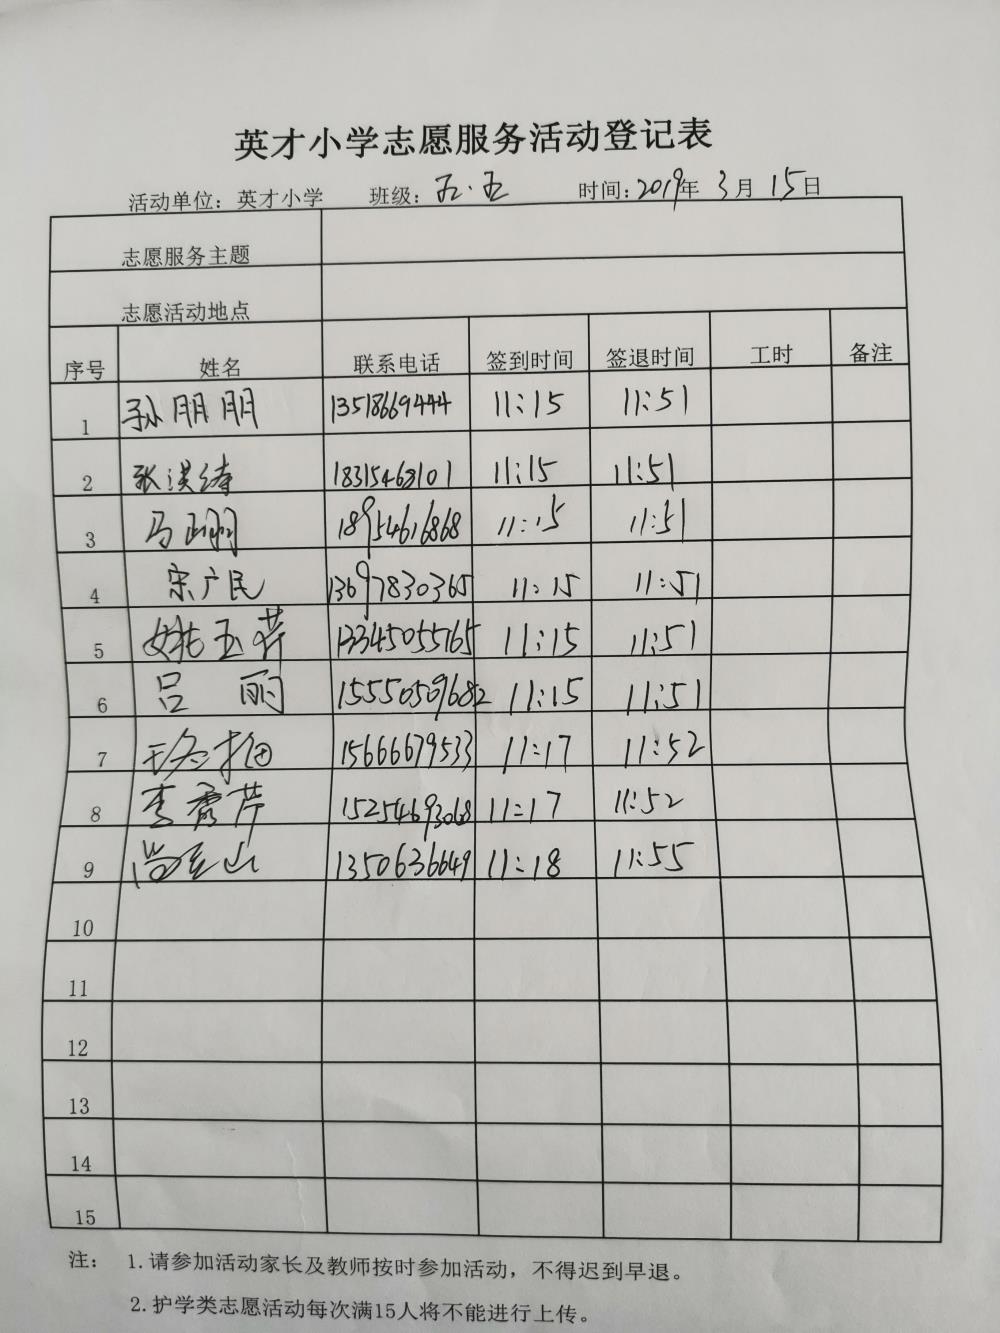 英才小学志愿服务活动登记表
活动单位：英才小学 班级：五.五 时间：2019年3月15日
志愿服务主题
志愿活动地点
序号 姓名 联系电话 签到时间 签退时间 工时 备注
1 孙朋朋 13518669444 11:15 11:51
2 张洪涛 11:15 11:51
3 马 18954616868 11:15 11:51
4 宋广民 13697830365 11:15 11:51
5 姚玉芹 13345055765 11:15 11:51
6 吕丽 15550509682 11:15 11:51
7 15666679533 11:17 11:52
8 李秀芹 15254693068 11:17 11:52
9 尚玉山 13506366649 11:18 11:55
10
11
12
13
14
15
注： 1.请参加活动家长及教师按时参加活动，不得迟到早退。
2.护学类志愿活动每次满15人将不能进行上传。